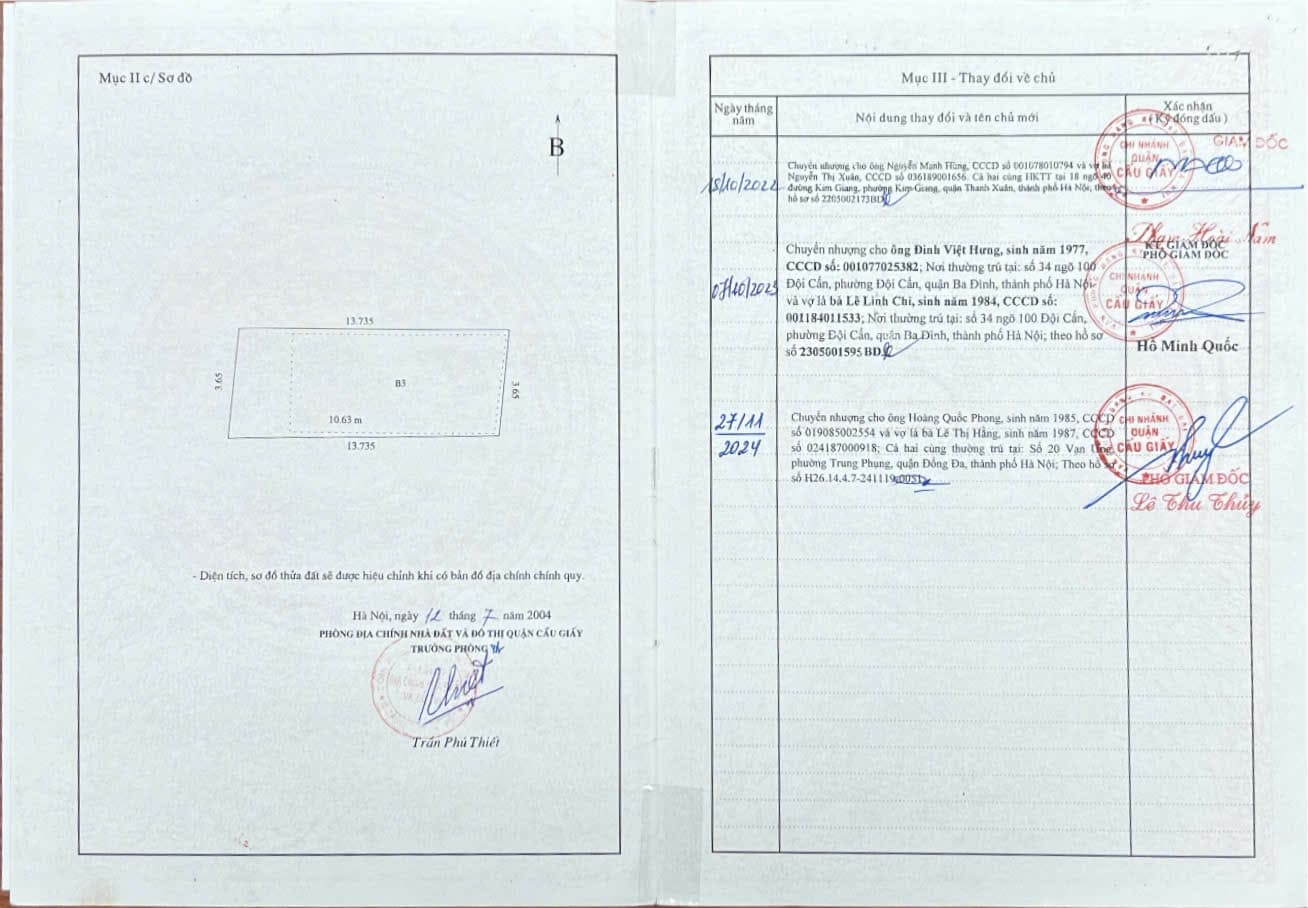 Mục II c/ Sơ đồ
B
13.735
3.65
B3
3.65
10.63 m
13.735
- Diện tích, sơ đồ thửa đất sẽ được hiệu chỉnh khi có bản đồ địa chính chính quy.
Hà Nội, ngày 12 tháng 7 năm 2004
PHÒNG ĐỊA CHÍNH NHÀ ĐẤT VÀ ĐÔ THỊ QUẬN CẦU GIẤY
TRƯỞNG PHÒNG
Trần Phú Thiết
Mục III - Thay đổi về chủ
Ngày tháng năm
Nội dung thay đổi và tên chủ mới
Xác nhận
( Ký đóng dấu )
GIÁM ĐỐC
CHI NHÁNH
QUẬN
CẦU GIẤY
Chuyển nhượng cho ông Nguyễn Mạnh Hùng, CCCD số 001078010794 và vợ bà
Nguyễn Thị Xuân, CCCD số 036189001656. Cả hai cùng HKTT tại 18 ngõ 40
đường Kim Giang, phường Kim Giang, quận Thanh Xuân, thành phố Hà Nội; theo
hồ sơ số 2205002173BD
Phạm Hoài Nam
KT. GIÁM ĐỐC
PHÓ GIÁM ĐỐC
07/10/2023
Chuyển nhượng cho ông Đinh Việt Hưng, sinh năm 1977,
CCCD số: 001077025382; Nơi thường trú tại: số 34 ngõ 100
Đội Cấn, phường Đội Cấn, quận Ba Đình, thành phố Hà Nội
và vợ là bà Lê Linh Chi, sinh năm 1984, CCCD số:
001184011533; Nơi thường trú tại: số 34 ngõ 100 Đội Cấn,
phường Đội Cấn, quận Ba Đình, thành phố Hà Nội; theo hồ sơ
số 2305001595 BD
CHI NHÁNH
QUẬN
CẦU GIẤY
Hồ Minh Quốc
27/11
2024
Chuyển nhượng cho ông Hoàng Quốc Phong, sinh năm 1985, CCCD
số 019085002554 và vợ là bà Lê Thị Hằng, sinh năm 1987, CCCD
số 024187000918; Cả hai cùng thường trú tại: Số 20 Vạn Ứng,
phường Trung Phụng, quận Đống Đa, thành phố Hà Nội; Theo hồ sơ
số H26.14.4.7-241119.0051
CHI NHÁNH
QUẬN
CẦU GIẤY
PHÓ GIÁM ĐỐC
Lê Thu Thủy